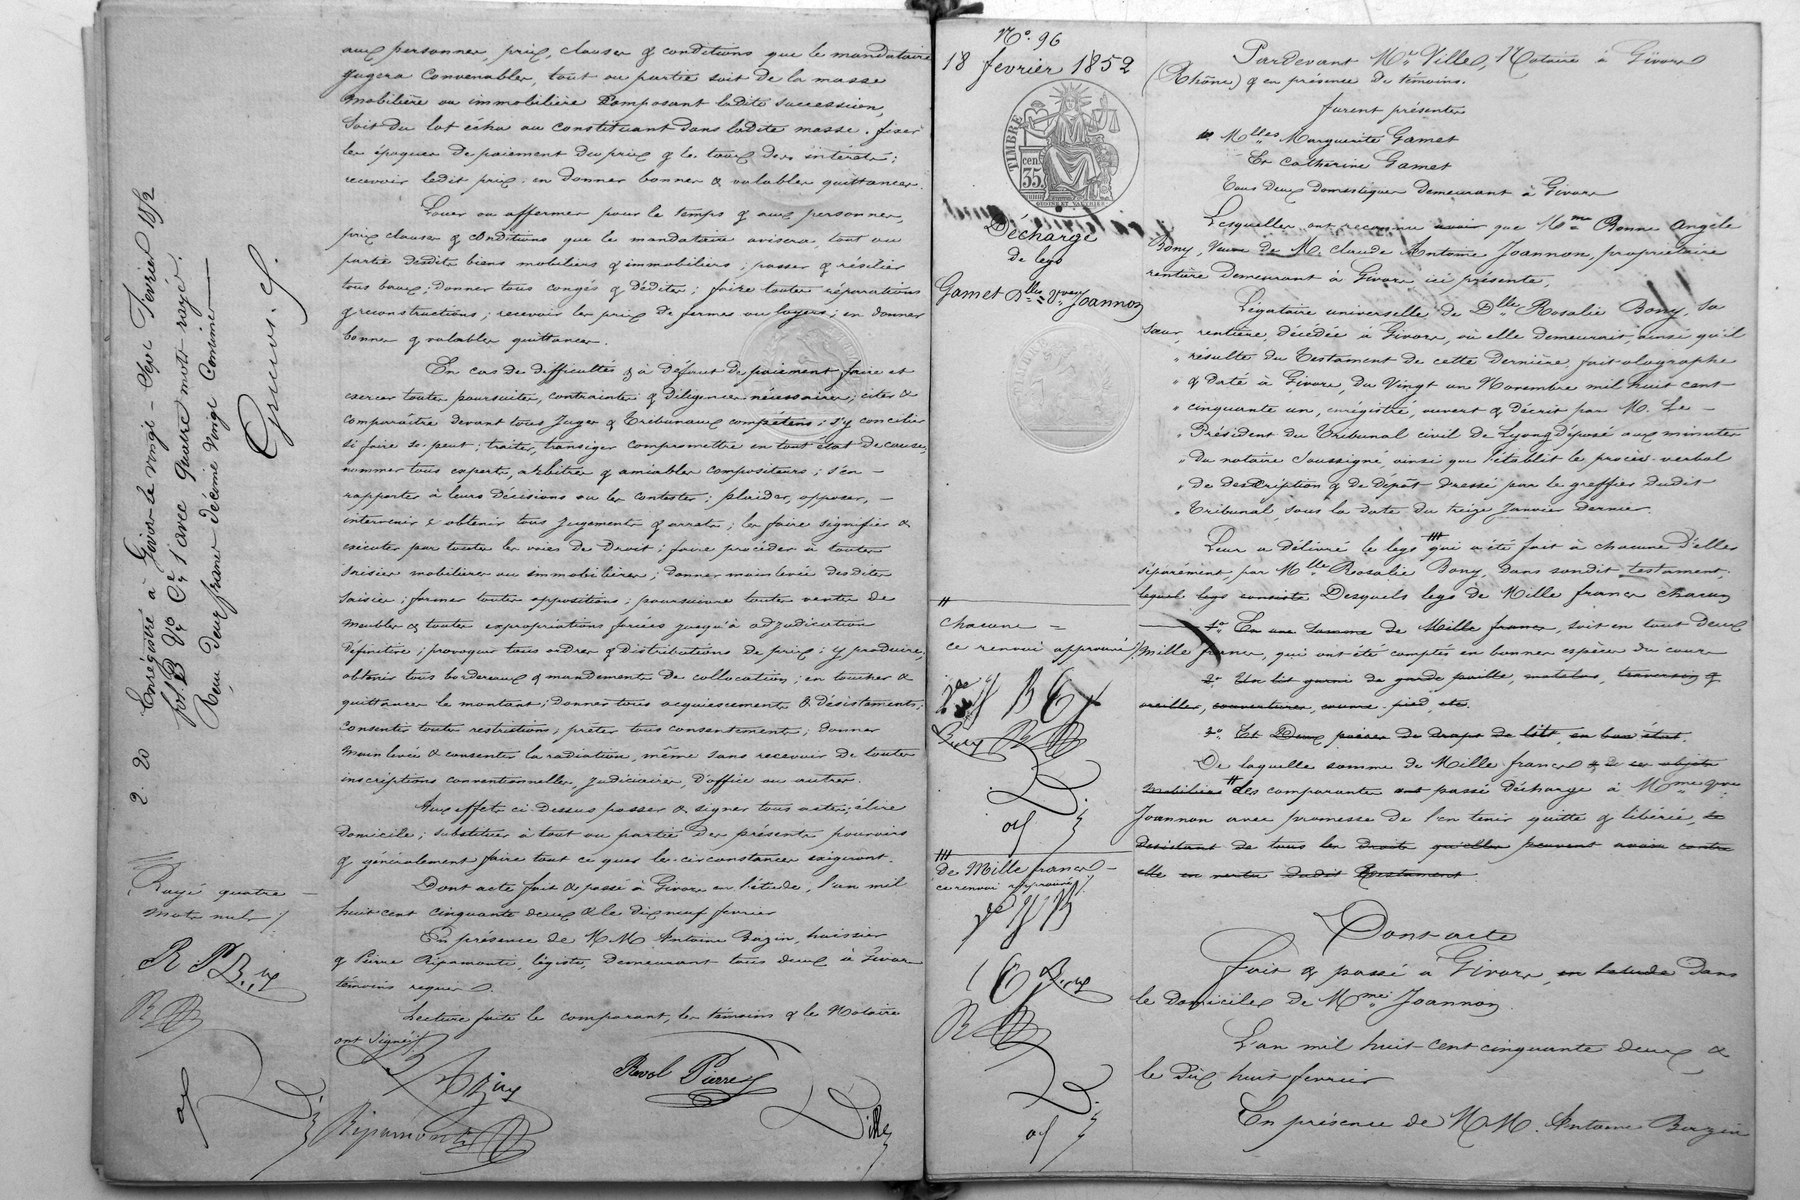 aux personnes, prix, clauses & conditions que le mandataire
jugera convenables, tout ou partie soit de la masse
mobilière ou immobilière composant ladite succession,
soit du lot échu au constituant dans ladite masse. fixer
les époques de paiement du prix & le taux des intérêts;
recevoir ledit prix; en donner bonnes & valables quittances.
Louer ou affermer pour le temps & aux personnes,
prix clauses & conditions que le mandataire avisera, tout ou
partie desdits biens mobiliers & immobiliers; passer & résilier
tous baux; donner tous congés & dédites; faire toutes réparations
& reconstructions; recevoir les prix de fermes ou loyers; en donner
bonnes & valables quittances.
En cas de difficultés & à défaut de paiement faire et
exercer toutes poursuites, contraintes & diligences nécessaires; citer &
comparaître devant tous Juges & Tribunaux compétens; s'y concilier
si faire se peut; traiter, transiger compromettre en tout état de cause,
nommer tous experts, arbitres & amiables compositeurs; s'en
rapporter à leurs décisions ou les contester; plaider, opposer,
intervenir & obtenir tous jugements & arrêts; les faire signifier &
exécuter par toutes les voies de Droit; faire procéder à toutes
saisies mobilières ou immobilières; donner mainlevée desdites
saisies; former toutes oppositions; poursuivre toutes ventes de
meubles & toutes expropriations forcées jusqu'à adjudication
définitive; provoquer tous ordres & distributions de prix; y produire,
obtenir tous bordereaux & mandements de collocation; en toucher &
quittancer le montant; donner tous acquiescements & désistements;
consentir toutes restrictions; prêter tous consentements; donner
mainlevée & consentir la radiation, même sans recevoir de toutes
inscriptions conventionnelles, judiciaires, d'office ou autres.
Aux effets ci-dessus passer & signer tous actes; élire
domicile; substituer à tout ou partie des présents pouvoirs
& généralement faire tout ce que les circonstances exigeront.
Dont acte fait & passé à Givors en l'étude, l'an mil
huit cent cinquante deux & le dix neuf février
En présence de M M. Antoine Bazin, huissier
& Pierre Ripamonti, légiste, demeurant tous deux à Givors
témoins requis.
Lecture faite le comparant, les témoins & le Notaire
ont signé./.
Revol Pierre
Ripamonti
Ville
Enregistré à Givors le vingt-sept Février 1852
fol. Vo Ce 1 avec quatre mots rayés.
Reçu deux francs décime vingt centimes
2. 20
Rayé quatre
mots nuls./.
R P
No. 96
18 février 1852
TIMBRE
35 cen
Décharge
de legs
Gamet Dlles Vve Joannon
chacune =
ce renvoi approuvé./.
de Mille francs
ce renvoi approuvé./.
Pardevant Me Ville, Notaire à Givors
(Rhône) & en présence de témoins.
furent présentes
Mlles Marguerite Gamet
Et Catherine Gamet
Tous deux domestiques demeurant à Givors
Lesquelles ont reconnu avoir que Mme Bonne Angèle
Bony, Veuve de M. Claude Antoine Joannon, propriétaire
rentière demeurant à Givors, ici présente,
Légataire universelle de Dlle Rosalie Bony, sa
sœur, rentière, décédée à Givors, où elle demeurait, ainsi qu'il
" résulte du Testament de cette dernière, fait olographe
" & daté à Givors, du vingt un Novembre mil huit cent
" cinquante un, enregistré, ouvert & décrit par M. Le
" Président du Tribunal civil de Lyon & déposé aux minutes
" du notaire soussigné, ainsi que l'établit le procès-verbal
" de description & de dépôt dressé par le greffier dudit
" Tribunal, sous la date du treize Janvier dernier.
Leur a délivré le legs qui a été fait à chacune d'elles
séparément, par Mlle Rosalie Bony, dans sondit testament,
lequel legs consiste Desquels legs de Mille francs chacun
1o En une somme de Mille francs, soit en tout deux
mille francs, qui ont été comptés en bonnes espèces du cours
2o Un lit garni de garde paille, matelas, traversin &
oreiller, couvertures, couvre-pied etc.
3o Et Deux paires de draps de lit, en bon état.
De laquelle somme de Mille francs & de ces objets
mobiliers les comparantes ont passé décharge à Mme Vve
Joannon avec promesse de l'en tenir quitte & libérée, se
Désistant de tous les droits qu'elles peuvent avoir contre
elle en vertu dudit Testament
Dont acte
Fait & passé à Givors, en l'étude dans
le domicile de Mme Joannon
L'an mil huit cent cinquante deux &
le dix huit février
En présence de M M. Antoine Bazin